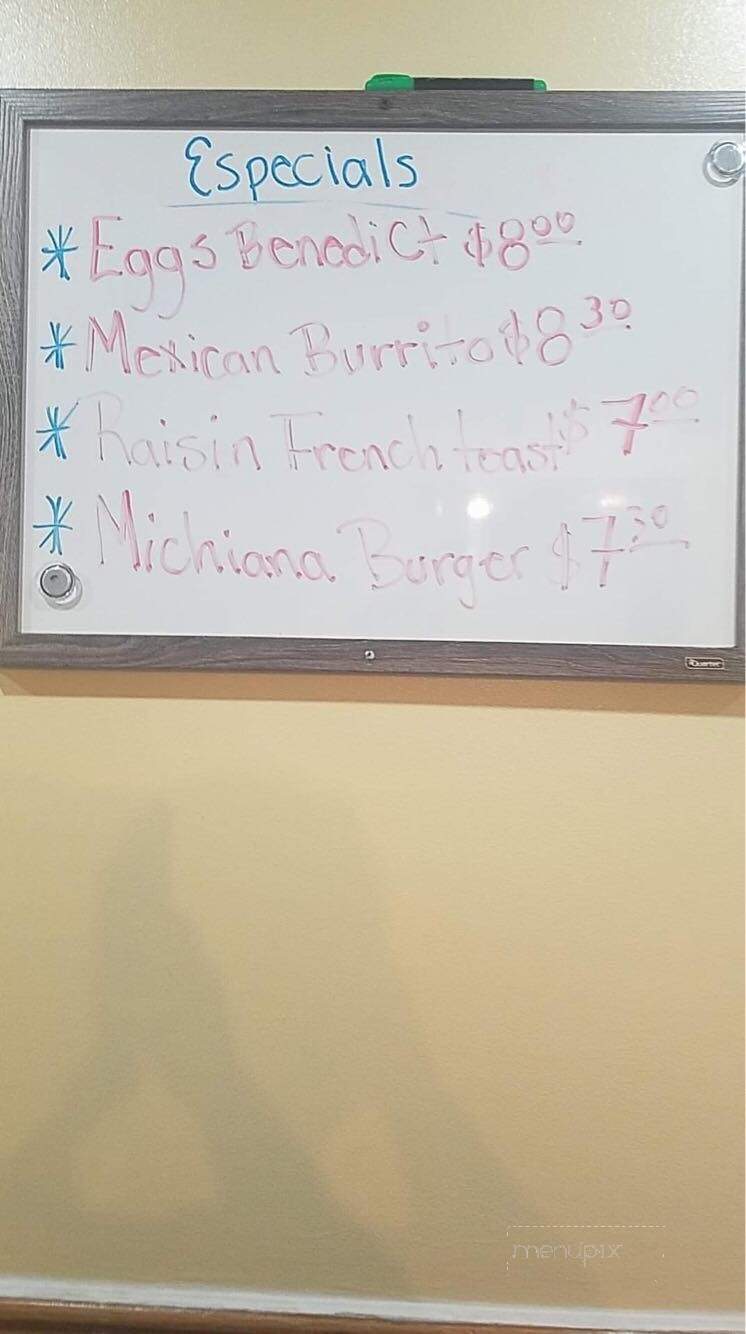 Especials
* Eggs Benedict $8.00
* Mexican Burrito $8.30
* Raisin French toast $7.00
* Michiana Burger $7.30
Quartet
menupix